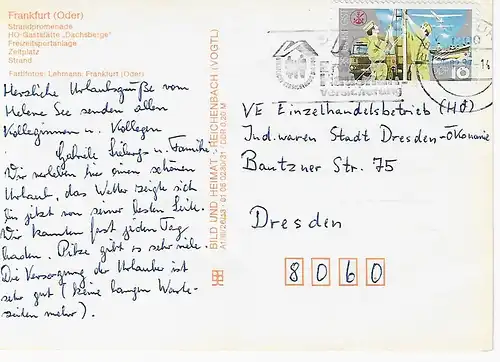 Frankfurt (Oder)
Strandpromenade
HO-Gaststätte „Dachsberge"
Freizeitsportanlage
Zeltplatz
Strand
Farbfotos: Lehmann, Frankfurt (Oder)
Herzliche Urlaubsgrüße vom
Helene See senden allen
Kolleginnen u. Kollegen
Gabriele u. Familie.
Wir verleben hier einen schönen
Urlaub, das Wetter zeigte sich
bis jetzt von seiner besten Seite.
Wir konnten fast jeden Tag
baden. Pilze gibt es sehr viele.
Die Versorgung der Urlauber ist
sehr gut (keine langen Warte-
zeiten mehr).
BILD UND HEIMAT · REICHENBACH (VOGTL)
10
Versicherung
VE Einzelhandelsbetrieb (HO)
Ind. waren Stadt Dresden-Ökonomie
Bautzner Str. 75
Dresden
8060